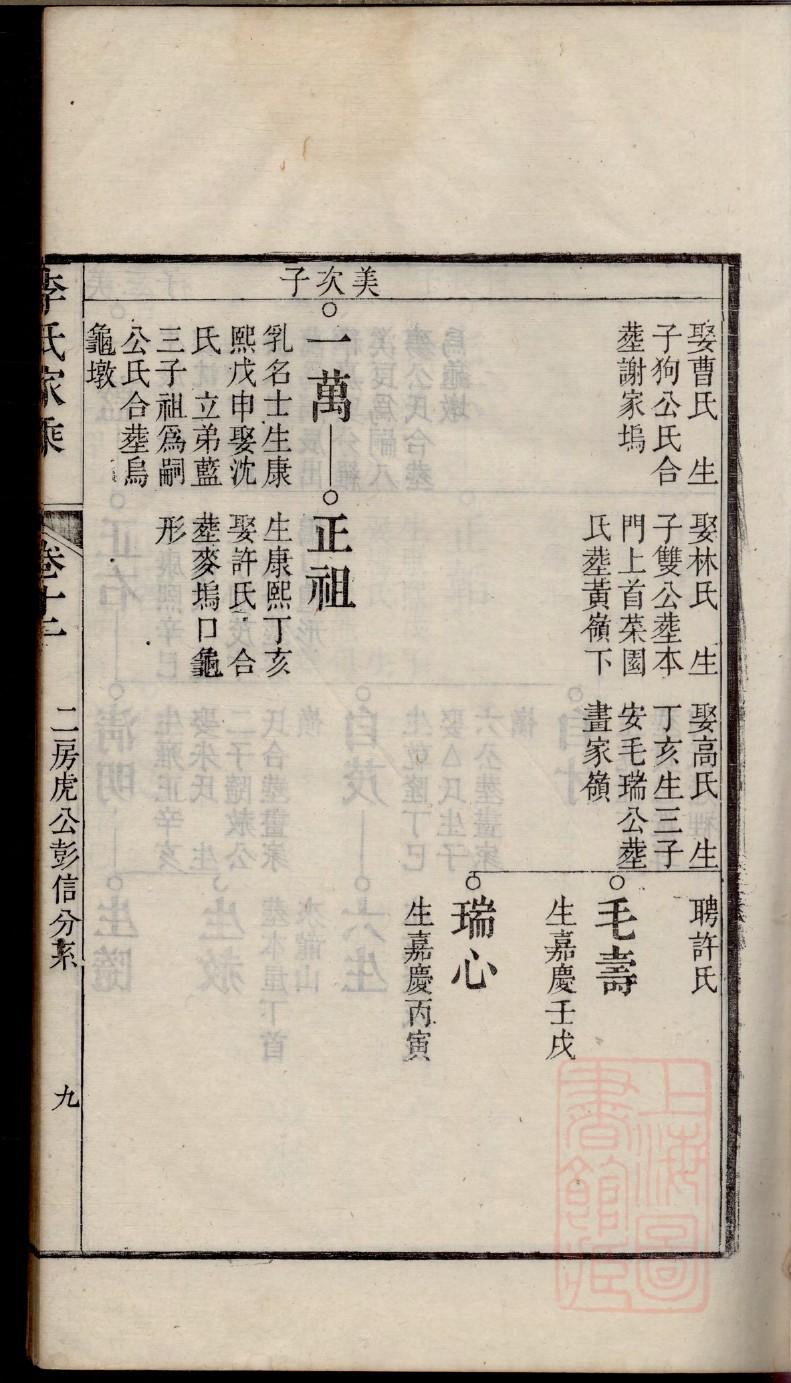 美次子
娶曹氏　生
子狗公氏合
塟謝家塢
娶林氏　生
子雙公塟本
門上首菜園
氏塟黃嶺下
娶高氏　生
丁亥生三子
安毛瑞公塟
畫家嶺
聘許氏
毛壽
生嘉慶壬戌
瑞心
生嘉慶丙寅
一萬
乳名士生康
熙戊申娶沈
氏　立弟藍
三子祖爲嗣
公氏合塟烏
龜墩
正祖
生康熙丁亥
娶許氏　合
塟麥塢口龜
形
李氏家乘
卷十二
二房虎公彭信分系
九
上海圖書館藏